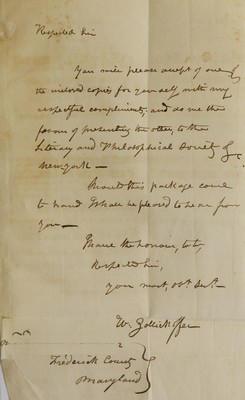 Respected Sir
You will please accept of one of
the inclosed copies for yourself with my
respectful compliments, and do me the
favour of presenting the other to the
Literary and Philosophical Society of
New York —
Should this package come
to hand I shall be pleased to hear from
you —
I have the honour, to be,
Respected Sir,
your most, obt. Sert.
W. Zollickoffer
Frederick County
Maryland